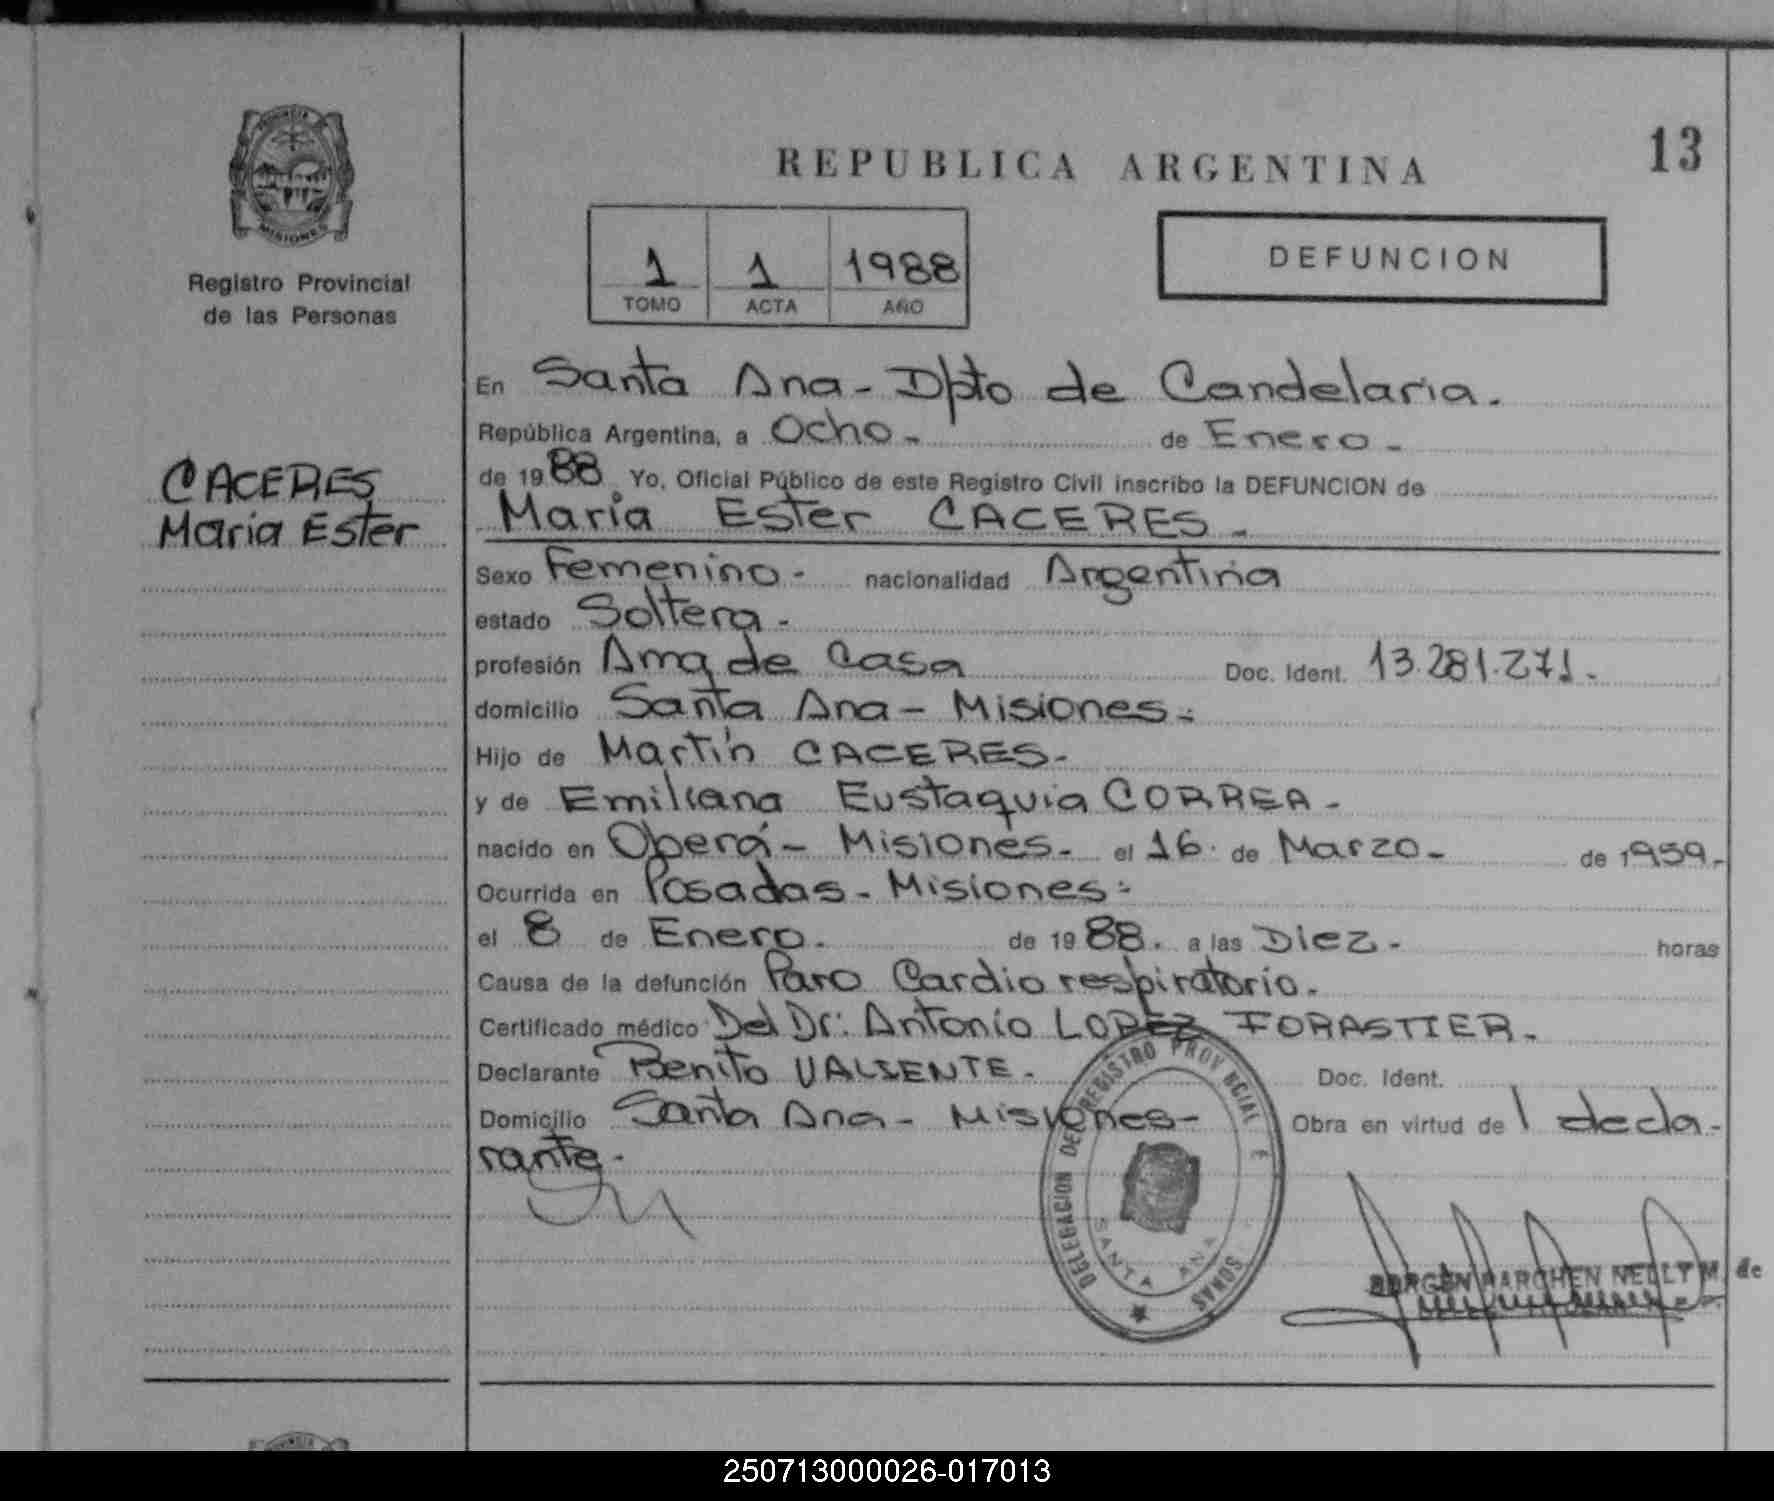 PROVINCIA
MISIONES
Registro Provincial
de las Personas
CACERES
Maria Ester
13
REPUBLICA ARGENTINA
1 1 1988
TOMO ACTA AÑO
DEFUNCION
En Santa Ana - Dpto de Candelaria.
República Argentina, a Ocho - de Enero -
de 1988 Yo, Oficial Público de este Registro Civil inscribo la DEFUNCION de
Maria Ester CACERES -
Sexo Femenino - nacionalidad Argentina
estado Soltera -
profesión Ama de Casa Doc. Ident. 13.281.271.-
domicilio Santa Ana - Misiones -
Hijo de Martín CACERES -
y de Emiliana Eustaquia CORREA -
nacido en Oberá - Misiones - el 16 de Marzo - de 1959 -
Ocurrida en Posadas - Misiones -
el 8 de Enero. de 1988. a las Diez - horas
Causa de la defunción Paro Cardio respiratorio.
Certificado médico Del Dr: Antonio LOPEZ FORASTIER -
Declarante Benito VALIENTE - Doc. Ident.
Domicilio Santa Ana - Misiones - Obra en virtud de 1 decla-
rante -
DELEGACION DEL REGISTRO PROVINCIAL
SANTA ANA
NELLY M. de
PROVINCIA
250713000026-017013